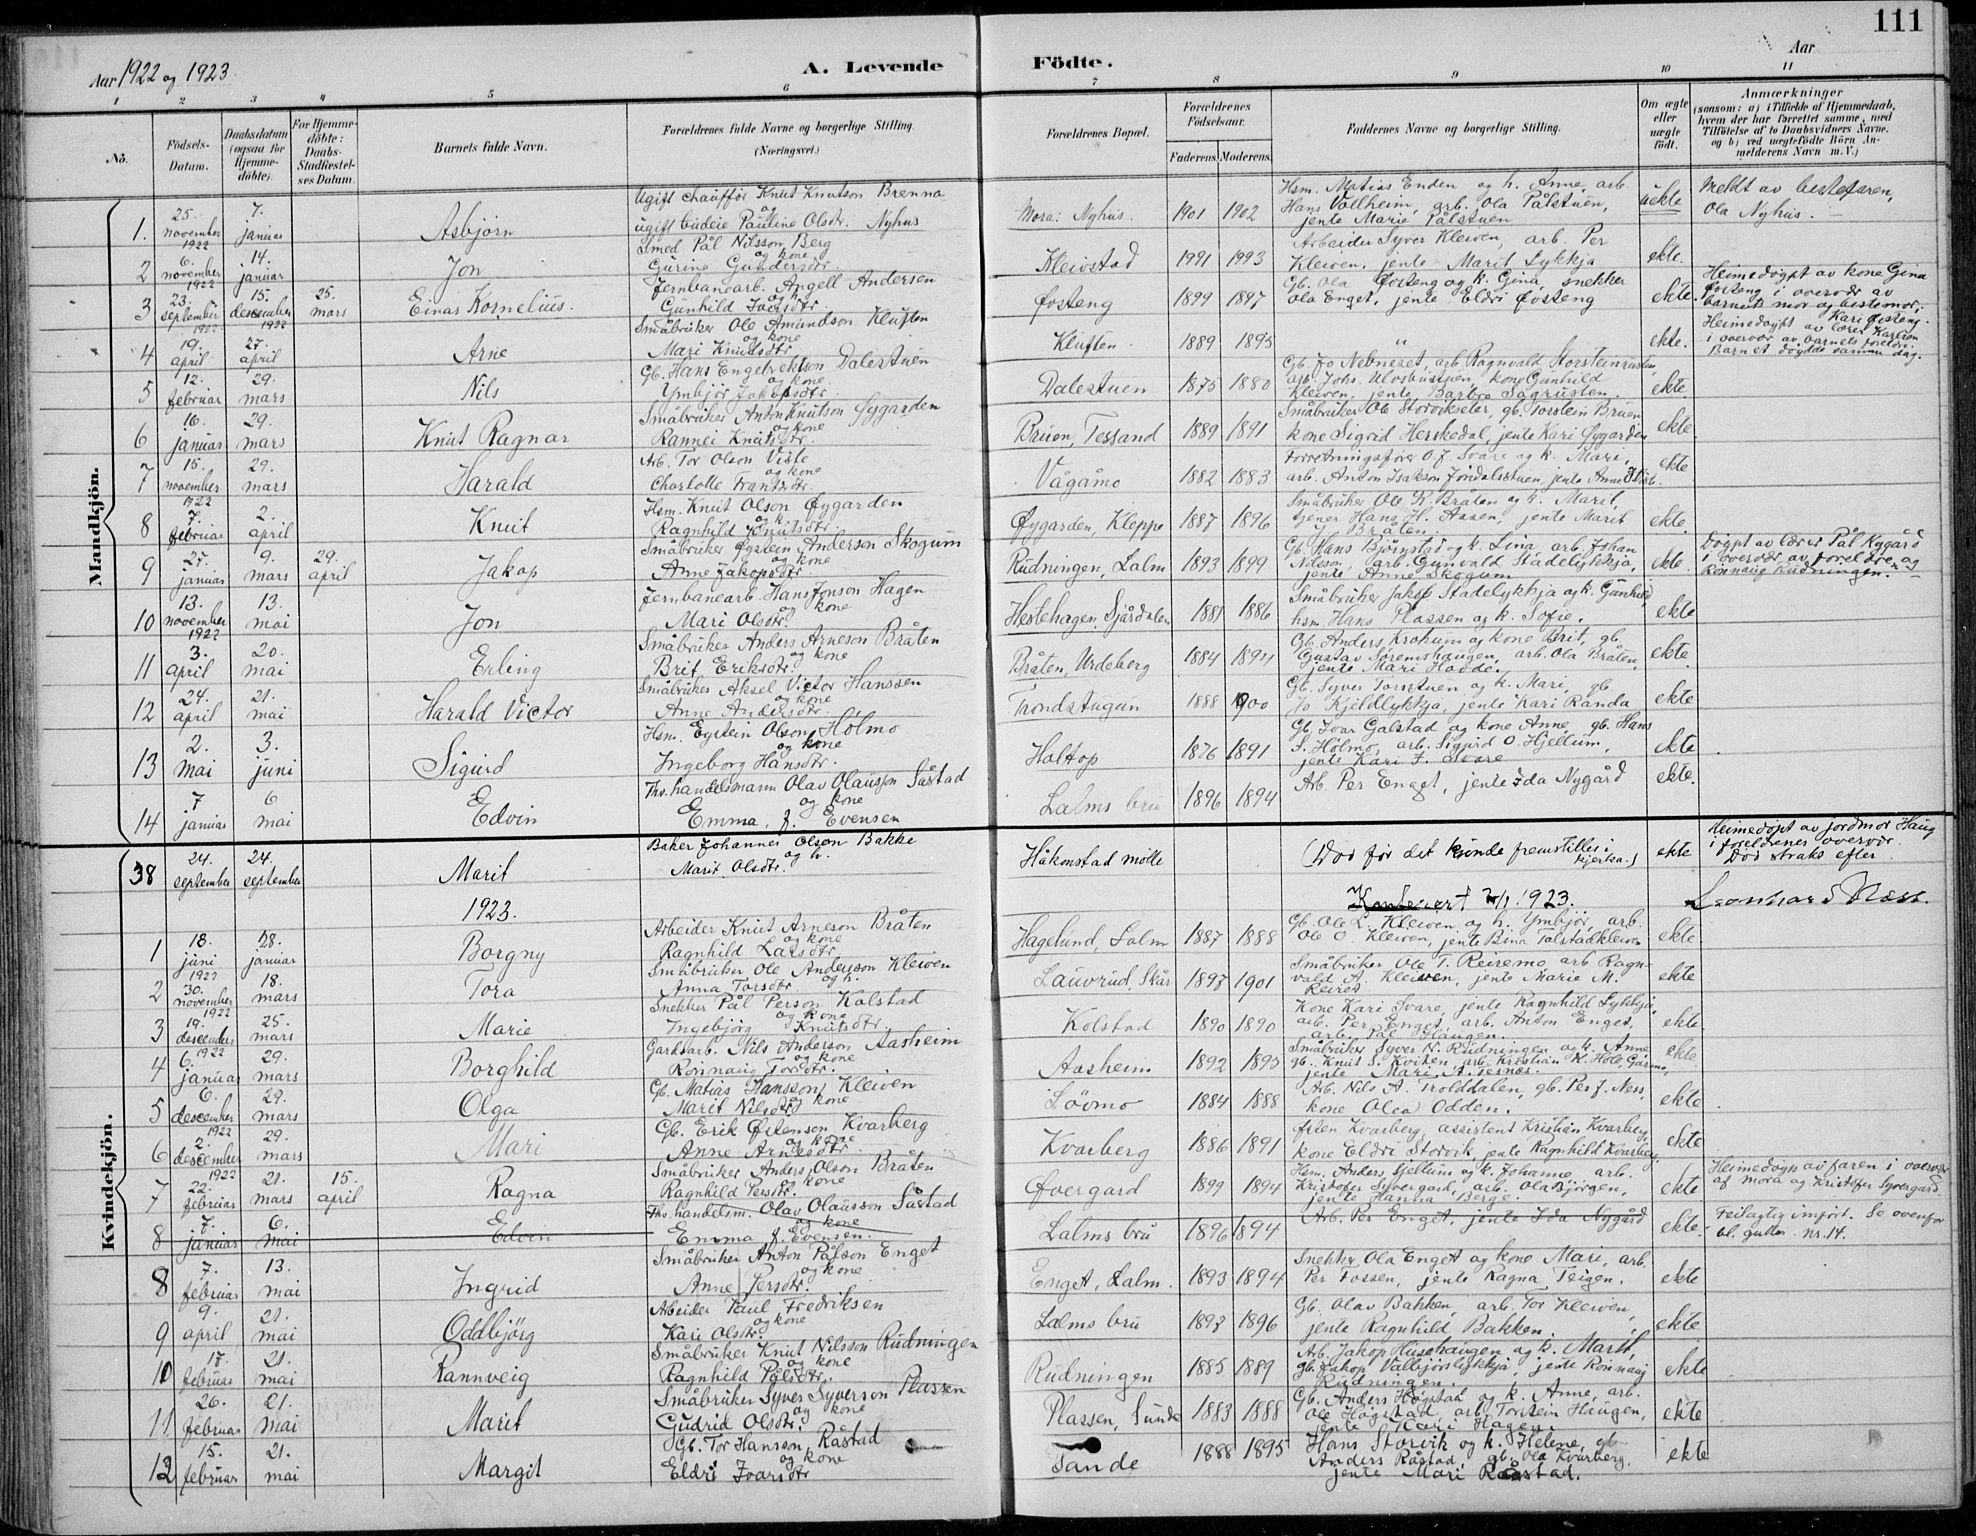 111
Aar 1922 og 1923.
A. Levende Födte.
Aar
1 2 3 4 5 6 7 8 9 10 11
No.
Födsels-Datum.
Daabsdatum (ogsaa for Hjemme-döbte).
For Hjemme-döbte: Daabs-Stadfæstel-ses Datum.
Barnets fulde Navn.
Forældrenes fulde Navne og borgerlige Stilling. (Næringsvei.)
Forældrenes Bopæl.
Forældrenes Födselsaar.
Faderens. Moderens.
Faddernes Navne og borgerlige Stilling.
Om ægte eller uægte födt.
Anmærkninger (saasom: a) i Tilfælde af Hjemmedaab, hvem der har forrettet samme, med Tilföielse af to Daabsvidners Navne. og b) ved uægtefödte Börn An-melderens Navn m. V.)
Mandkjön.
1. 25. november 1922 7. januar Asbjörn Ugift chauffør Knut Knutson Brenna og ugift budeie Pauline Olsdtr. Nyhus Mora: Nyhus. 1901 1902 Hsm. Matias Enden og h. Anne, arb. Hans Vollheim, arb. Ola Pålstuen, jente Marie Pålstuen uekte Meldt av bestefaren, Ola Nyhus.
2 6. november 1922 14. januar Jon Smed Pål Nilsson Berg og kone Gurine Gundersdtr. Kleivstad 1991 1993 Arbeider Syver Kleiven, arb. Per Kleiven, jente Marit Lykkja ekte.
3 23. september 1922 15. descember 1922 25. mars Einar Kornelius. Jernbanearb. Angell Andersen og k. Gunhild Iversdtr Øosteng 1899 1897 Gb. Ola Øosteng og k. Gina, snekker Ola Enget, jente Eldri Øosteng ekte. Heimedøypt av kone Gina Øosteng i overvær av barnets mor og bestemor, Kari Øosteng.
4 19. april 27. april Arne Småbruker Ole Amundson Kluften og kone Mari Knutsdtr Kluften. 1889 1895 " ekte. Heimedøypt av lærer Karlson i overvær av barnets foreldre. Barnet døydde samme dag.
5 12. februar 29. mars Nils Gb. Hans Engebrektson Dalestuen og kone Ymbjør Jakopsdtr Dalestuen 1875 1880 Gb. Jo Nebneset, arb. Ragnvald Storsteinrusten, arb. Johs. Ulvsbustuen, kone Gunhild Kleiven, jente Barbro Sagrusten. ekte.
6 16. januar 29. mars Knut Ragnar Småbruker Anton Knutson Øygarden og kone Rannei Knutsdtr. Bruen, Tessand 1889 1891 Småbruker Ole Storvikseter, gb. Torstein Bruen, kone Sigrid Herskedal, jente Kari Øygarden ekte.
7 15. november 1922 29. mars Harald Arb. Tor Olson Viste og kone Charlotte Frantsdtr. Vågåmo 1882 1883 Forretningsfører O. J. Svare og k. Mari, arb. Anton Isakson Jondalsstuen, jente Anne ekte
8 7. februar 2. april Knut Hsm. Knut Olson Øygarden og k. Ragnhild Knutsdtr. Øygarden, Kleppe 1887 1896 Småbruker Ole K. Bråten og k. Marit, tjener Hans H. Aasen, jente Marit J. Bråten. ekte.
9 27. januar 9. mars 29. april Jakop Småbruker Øystein Anderson Skogum og kone Anne Jakopsdtr Rudningen, Lalm 1893 1899 Gb. Hans Bjørnstad og k. Lina, arb. Johan Nilsson, arb. Gunvald Stadelykkja, jente Anne Skogum ekte. Døypt av lærer Pål Nygård i overvær av foreldre og Rønnaug Rudningen.
10 13. november 1922 13. mai Jon Jernbanearb. Hans Jonson Hagen og kone Mari Olsdtr. Hestehagen, Sjårdalen 1881 1886 Småbruker Jakop Stadelykkja og k. Gunhild, hsm. Hans Plassen og k. Sofie. ekte
11 3. april 20. mai Erling Småbruker Anders Arneson Bråten og kone Brit Eriksdtr. Bråten, Urdeberg 1884 1894 Gb. Anders Krohum og kone Brit, gb. Gustav Søremshaugen, arb. Ola Bråten, jente Mari Hovde. ekte.
12 24. april 21. mai Harald Victor Småbruker Aksel Victor Hanssen og kone Anne Andersdtr. Trondstugun 1888 1900 Gb. Syver Torsstuen og k. Mari, gb. Jo Kjeldlykkja, jente Kari Randa ekte
13 2. mai 3. juni Sigurd Hsm. Eystein Olson Holmo og kone Ingeborg Hansdtr. Holtop 1876 1891 Gb. Ivar Galstad og kone Anne, gb. Hans S. Holmo, arb. Sigurd O. Hjellum, jente Kari J. Svare ekte
14 7 januar 6 mai Edvin Thv. handelsmann Olav Olausson Såstad og kone Emma, f. Evensen Lalms bru 1896 1894 Arb. Per Enget, jente Ida Nygård ekte.
Kvindekjön.
38 24. september 24. september Marit Baker Johannes Olson Bakke og h. Marit Olsdtr. Håkenstad mölle (Død før det kunde fremstilles i kjerka.) ekte Heimedöpt av jordmor Haug i foreldrenes overvær. Död straks efter.
1923. Konferert 2/1 1923.
1 18. juni 1922 28. januar Borgny Arbeider Knut Arneson Bråten og kone Ragnhild Larsdtr. Hagelund, Lalm 1887 1888 Gb. Ole L. Kleiven og h. Ymbjør, arb. Ole O. Kleiven, jente Bina Tolstadkleiven ekte
2 30. november 1922 18. mars Tora Småbruker Ole Anderson Kleiven og h. Anna Torsdtr. Lauvrud, Skår 1897 1901 Småbruker Ole T. Reiremo, arb. Ragnvald A. Kleiven, jente Marie M. Reiret ekte
3 19. descember 1922 25. mars Marie Snekker Pål Person Kolstad og kone Ingebjørg Knutsdtr. Kolstad 1890 1890 Kone Kari Svare, jente Ragnhild Lykkja, arb. Per Enget, arb. Anton Enget, arb. Pål Haugen. ekte
4 6. januar 29. mars Borghild Gardsarb. Nils Anderson Aasheim og kone Rønnaug Torsdtr. Aasheim 1892 1895 Småbruker Syver N. Rudningen og k. Anne, gb. Knut S. Kviten, arb. Kristian K. Hole, Garmo, jente Mari A. Tesnæs. ekte.
5 6. descember 1922 29. mars Olga Gb. Matias Hansson Kleiven og kone Marit Nilsdtr Løvmo 1884 1888 Arb. Nils A. Trolddalen, gb. Per J. Ness, kone Olea Odden. ekte
6 2. descember 1922 29. mars Mari Gb. Erik Østenson Kvarberg og kone Anne Arnesdtr. Kvarberg 1886 1891 Østen Kvarberg, assistent Kristian Kvarberg, kone Eldri Storvik, jente Ragnhild Kvarberg ekte
7 22. februar 21. mars 15. april Ragna Småbruker Anders Olson Bråten og kone Ragnhild Persdtr. Øvergard 1899 1894 Hsm. Anders Hjellum og k. Johanne, arb. Kristofer Syvergard, arb. Ola Bjørgen, jente Hanna Berge. ekte Heimedøypt av faren i overvær af mora og Kristofer Syvergard.
8 7. januar 6. mai Edvin Thv. handelsm. Olav Olausson Såstad og kone Emma f. Evensen. Lalms bru 1896 1894 Arb. Per Enget, jente Ida Nygård ekte. Feilagtig innført. Se ovenfor bl. gutter nr. 14.
8 7. februar 13. mai Ingrid Småbruker Anton Pålson Enget og kone Anne Persdtr. Enget, Lalm. 1893 1894 Snekker Ola Enget og kone Mari, arb. Per Fossen, jente Ragna Teigen. ekte
9 9. april 21. mai Oddbjörg Arbeider Paul Fredriksen og kone Kari Olsdtr. Lalms bru 1897 1896 Gb. Olav Bakken, arb. Tor Kleiven, jente Ragnhild Bakken. ekte
10 18. februar 21. mai Rannveig Småbruker Knut Nilsson Rudningen og kone Ragnhild Pålsdtr. Rudningen 1885 1889 Arb. Jakop Husehaugen og k. Marit, gb. Jakop Valbjörslykkja, jente Rönnaug Rudningen. ekte
11 26. februar 21. mai Marit Småbruker Syver Syverson Plassen og kone Gudrid Olsdtr. Plassen, Sunde 1883 1888 Gb. Anders Høgstad og k. Anne, arb. Ole Høgstad, arb. Torstein Haugen, jente Kari Hagen ekte
12 15. februar 21. mai Margit Gb. Tor Hanson Råstad og kone Eldri Ivarsdtr Sande 1888 1895 Hans Storvik og k. Helene, gb. Anders Råstad, gb. Ola Kvarberg, jente Mari Råstad. ekte